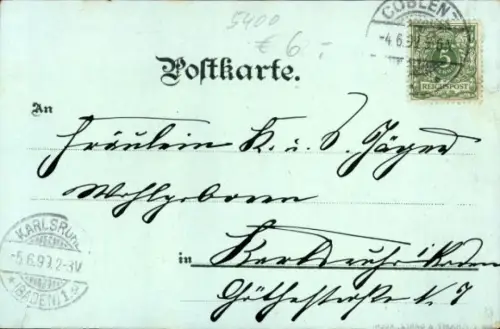 5400
€ 6.-
COBLENZ
-4.6.99.
5
REICHSPOST
Postkarte.
An
Fräulein K. u. S. Jäger
Wohlgeboren
in Karlsruhe i/Baden
Göthestraße N. 7
KARLSRUHE
-5.6.99.2-3V
(BADEN)1.a